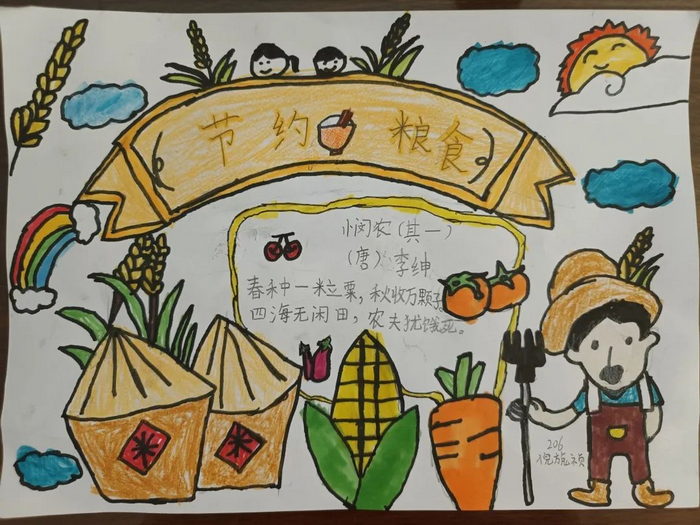 节约粮食
悯农(其一)
(唐)李绅
春种一粒粟,秋收万颗子
四海无闲田,农夫犹饿死。
米
米
206